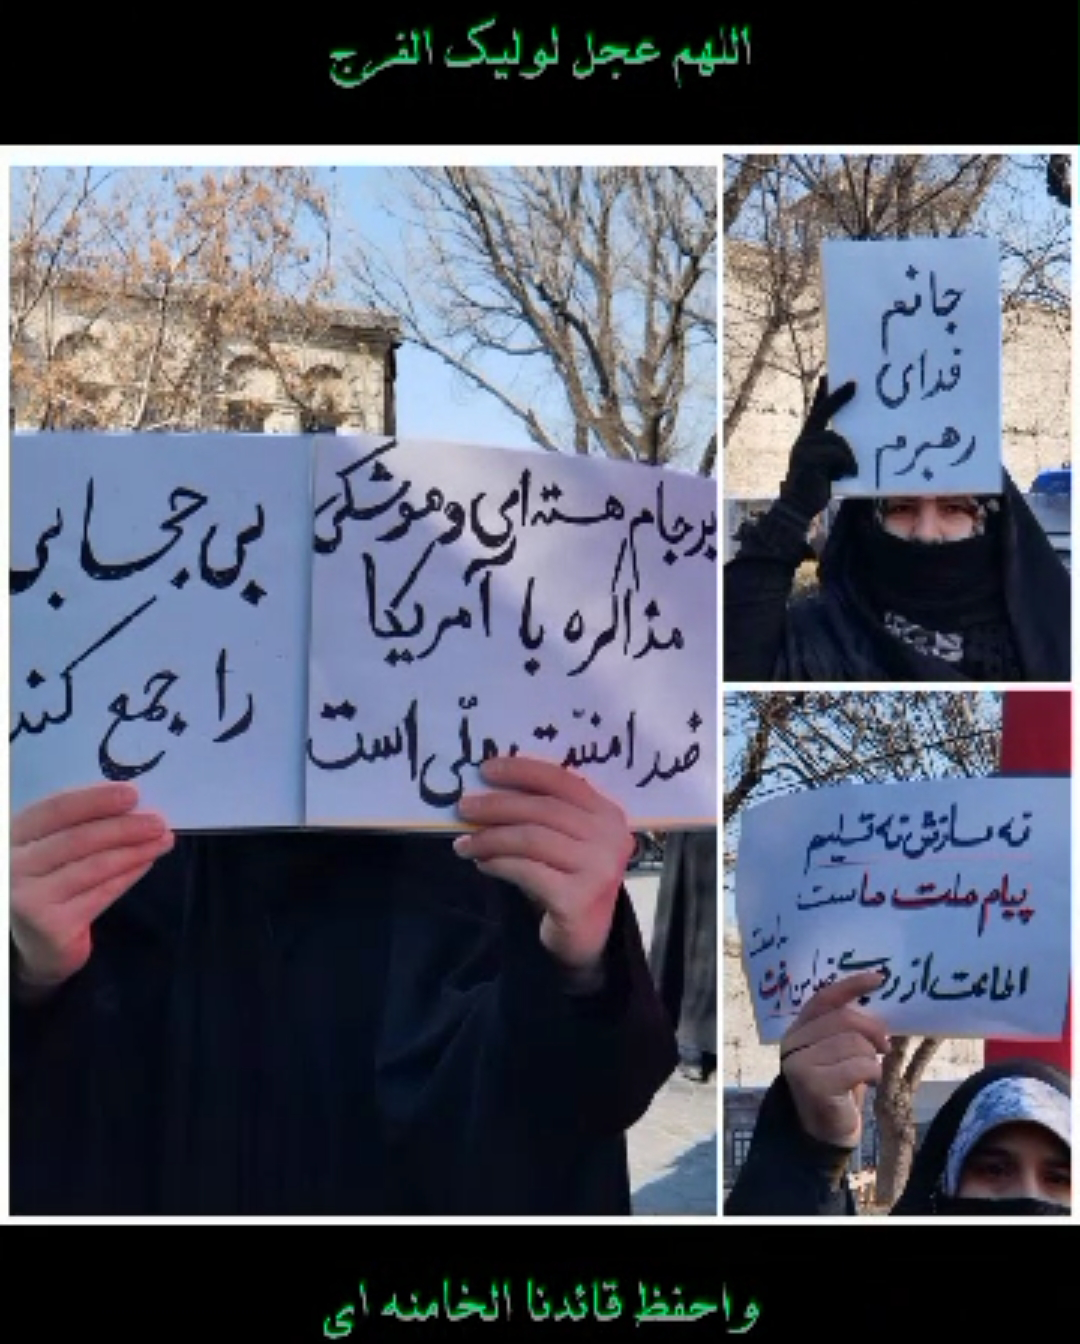 اللهم عجل لولیک الفرج
برجام هسته‌ای و موشکی
مذاکره با آمریکا
ضد امنیت ملّی است
بی حجابی
را جمع کنید
جانم
فدای
رهبرم
نه سازش نه تسلیم
پیام ملت ماست
اطاعت از رهبری ضامن عزت
ماست
واحفظ قائدنا الخامنه ای